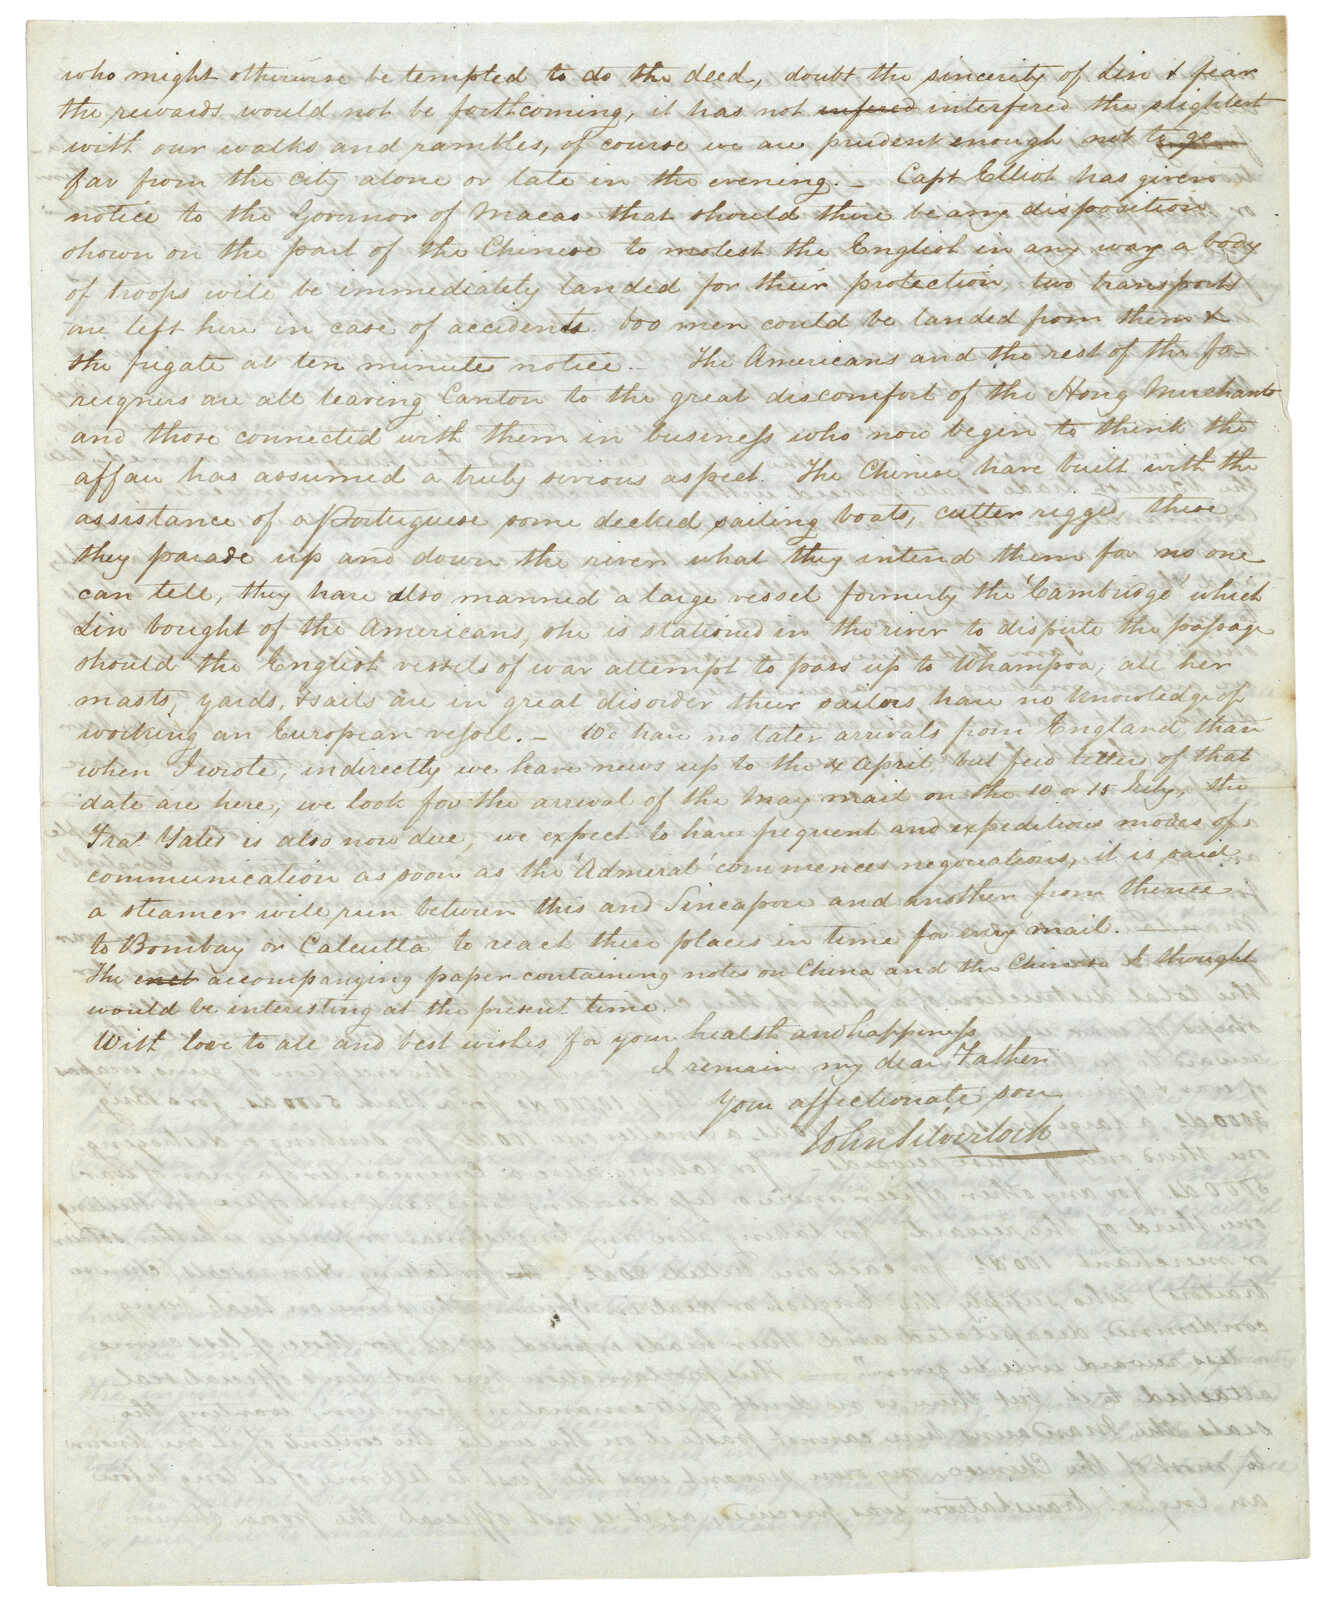 who might otherwise be tempted to do the deed, doubt the sincerity of Lin & fear
the rewards would not be forthcoming, it has not infered interfered the slightest
with our walks and rambles, of course we are prudent enough not to go
far from the city alone or late in the evening. _ Capt Elliot has given
notice to the Governor of Macao that should there be any disposition
shown on the part of the Chinese to molest the English in any way a body
of troops will be immediately landed for their protection, two transports
are left here in case of accidents. 600 men could be landed from them &
the frigate at ten minutes notice. _ The Americans and the rest of the fo-
reigners are all leaving Canton to the great discomfort of the Hong Merchants
and those connected with them in business who now begin to think the
affair has assumed a truly serious aspect. The Chinese have built with the
assistance of a Portuguese some decked sailing boats, cutter rigged, these
they parade up and down the river what they intend them for no one
can tell, they have also manned a large vessel formerly the 'Cambridge' which
Lin bought of the Americans, she is stationed in the river to dispute the passage
should the English vessels of war attempt to pass up to Whampoa, all her
masts, yards, & sails are in great disorder their sailors have no knowledge of
working an European vessel. _ We have no later arrivals from England than
when I wrote, indirectly we have news up to the 4 April but few letters of that
date are here, we look for the arrival of the May mail on the 10 or 15 July, the
Fras Yates is also now due, we expect to have frequent and expeditious modes of
communication as soon as the 'Admiral' commences negociations, it is said
a steamer will run between this and Sincapore and another from thence
to Bombay or Calcutta to reach these places in time for every mail. _
The encl accompanying paper containing notes on China and the Chinese I thought
would be interesting at the present time.
With love to all and best wishes for your health and happiness
I remain my dear Father
Your affectionate son
John Silverlock